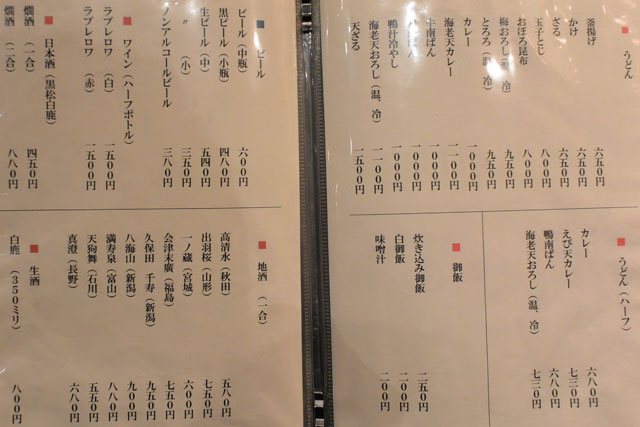 ■ うどん
釜揚げ 六五〇円
かけ 六五〇円
ざる 六五〇円
玉子とじ 八〇〇円
おぼろ昆布 八〇〇円
梅おろし（温、冷） 九五〇円
とろろ（温、冷） 九五〇円
カレー 一〇〇〇円
海老天カレー
南ばん 一〇〇〇円
南ばん 一〇〇〇円
鴨汁冷やし 一〇〇〇円
海老天おろし（温、冷） 一一〇〇円
天ざる 一五〇〇円
■ うどん（ハーフ）
カレー 六八〇円
えび天カレー 七三〇円
鴨南ばん 六八〇円
海老天おろし（温、冷） 七三〇円
■ 御飯
炊き込み御飯 二五〇円
白御飯 二〇〇円
味噌汁 二〇〇円
■ ビール
ビール（中瓶） 六〇〇円
黒ビール（小瓶） 四八〇円
生ビール（中） 五四〇円
〃（小） 三五〇円
ノンアルコールビール 三八〇円
■ ワイン（ハーフボトル）
ラブレロワ（白） 一五〇〇円
ラブレロワ（赤） 一五〇〇円
■ 日本酒（黒松白鹿）
燗酒（一合） 四五〇円
燗酒（二合） 八八〇円
■ 地酒（一合）
高清水（秋田） 五八〇円
出羽桜（山形） 七五〇円
一ノ蔵（宮城） 六〇〇円
会津末廣（福島） 七五〇円
久保田 千寿（新潟） 九五〇円
八海山（新潟） 九〇〇円
満寿泉（富山） 八八〇円
天狗舞（石川） 五五〇円
真澄（長野） 六八〇円
■ 生酒
白鹿（350ミリ） 八〇〇円